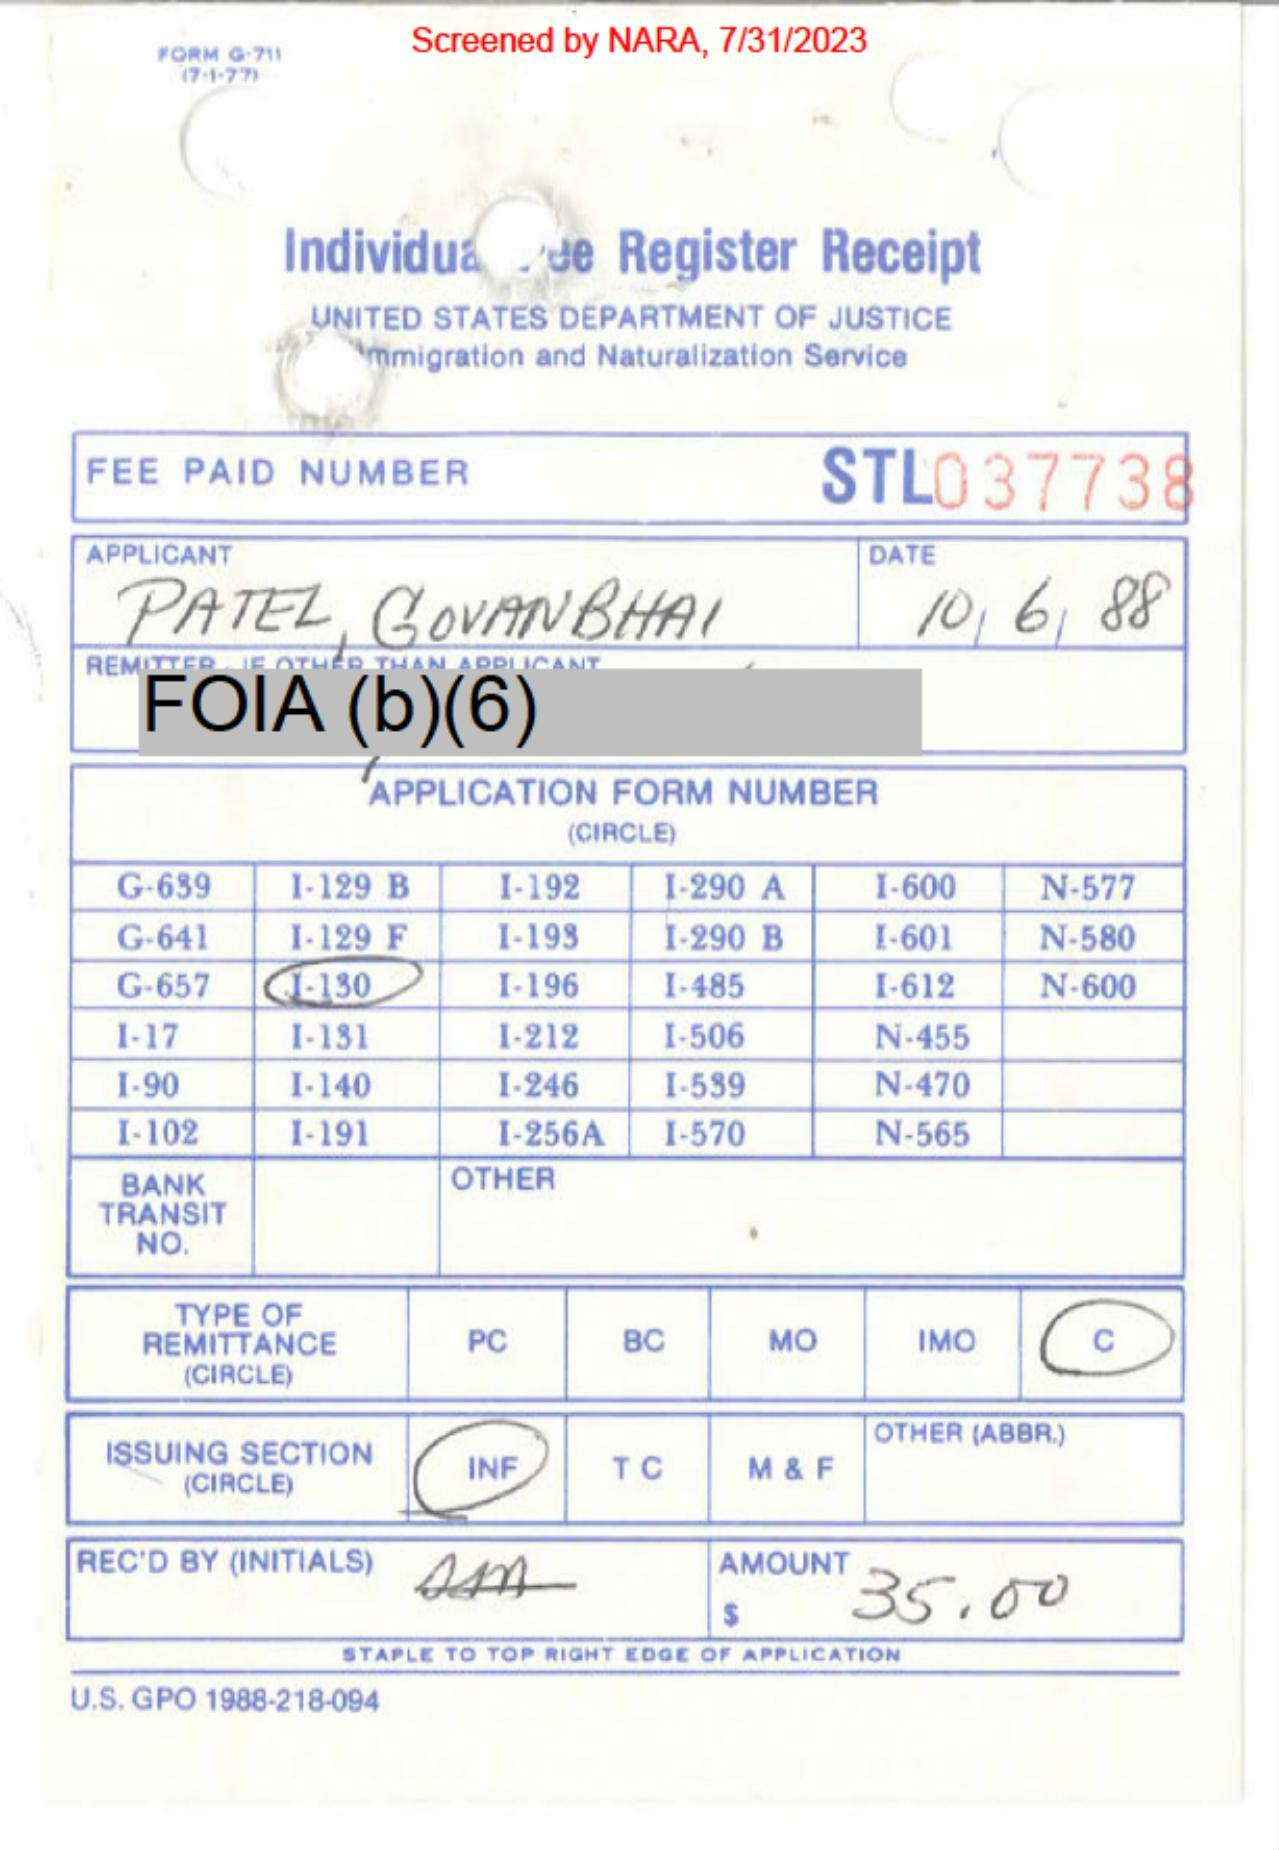 Screened by NARA, 7/31/2023
FORM G-711
(7-1-77)
Register Receipt
UNITED STATES DEPARTMENT OF JUSTICE
Immigration and Naturalization Service
FEE PAID NUMBER STL037738
APPLICANT DATE
PATEL, GOVANBHAI 10, 6, 88
REMITTER - IF OTHER THAN APPLICANT
FOIA (b)(6)
APPLICATION FORM NUMBER
(CIRCLE)
G-639 I-129 B I-192 I-290 A I-600 N-577
G-641 I-129 F I-193 I-290 B I-601 N-580
G-657 I-130 I-196 I-485 I-612 N-600
I-17 I-131 I-212 I-506 N-455
I-90 I-140 I-246 I-539 N-470
I-102 I-191 I-256A I-570 N-565
BANK TRANSIT NO. OTHER
TYPE OF REMITTANCE (CIRCLE) PC BC MO IMO C
ISSUING SECTION (CIRCLE) INF T C M & F OTHER (ABBR.)
REC'D BY (INITIALS) AMOUNT
$ 35.00
STAPLE TO TOP RIGHT EDGE OF APPLICATION
U.S. GPO 1988-218-094